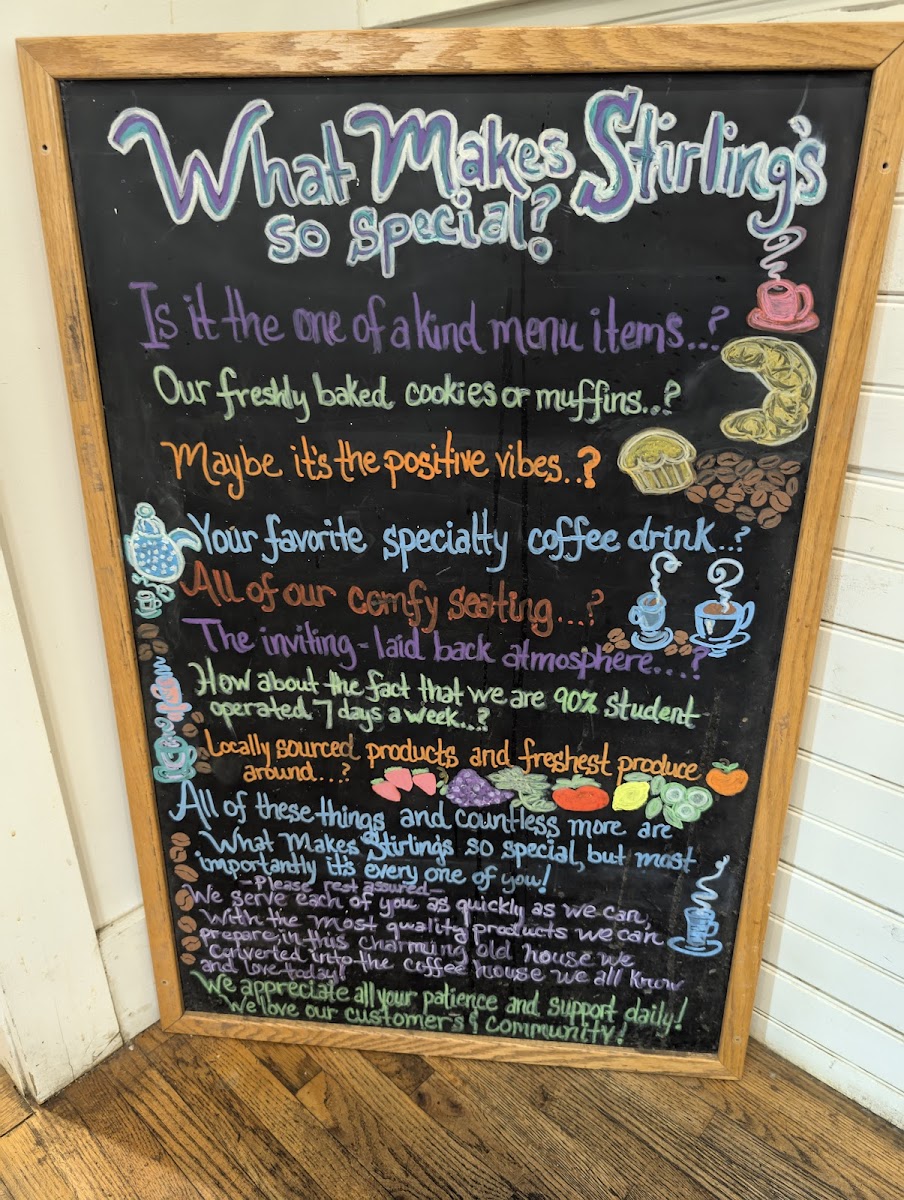 What Makes Stirling's
so special?
Is it the one of a kind menu items...?
Our freshly baked cookies or muffins...?
Maybe it's the positive vibes...?
Your favorite specialty coffee drink...?
All of our comfy seating...?
The inviting-laid back atmosphere....?
How about the fact that we are 90% student
operated 7 days a week...?
Locally sourced products and freshest produce
around...?
All of these things and countless more are
What Makes Stirling's so special, but most
importantly it's every one of you!
-Please rest assured-
We serve each of you as quickly as we can,
With the most quality products we can
prepare in this charming old house we
converted into the coffee house we all know
and love today!
We appreciate all your patience and support daily!
We love our customer's & community!